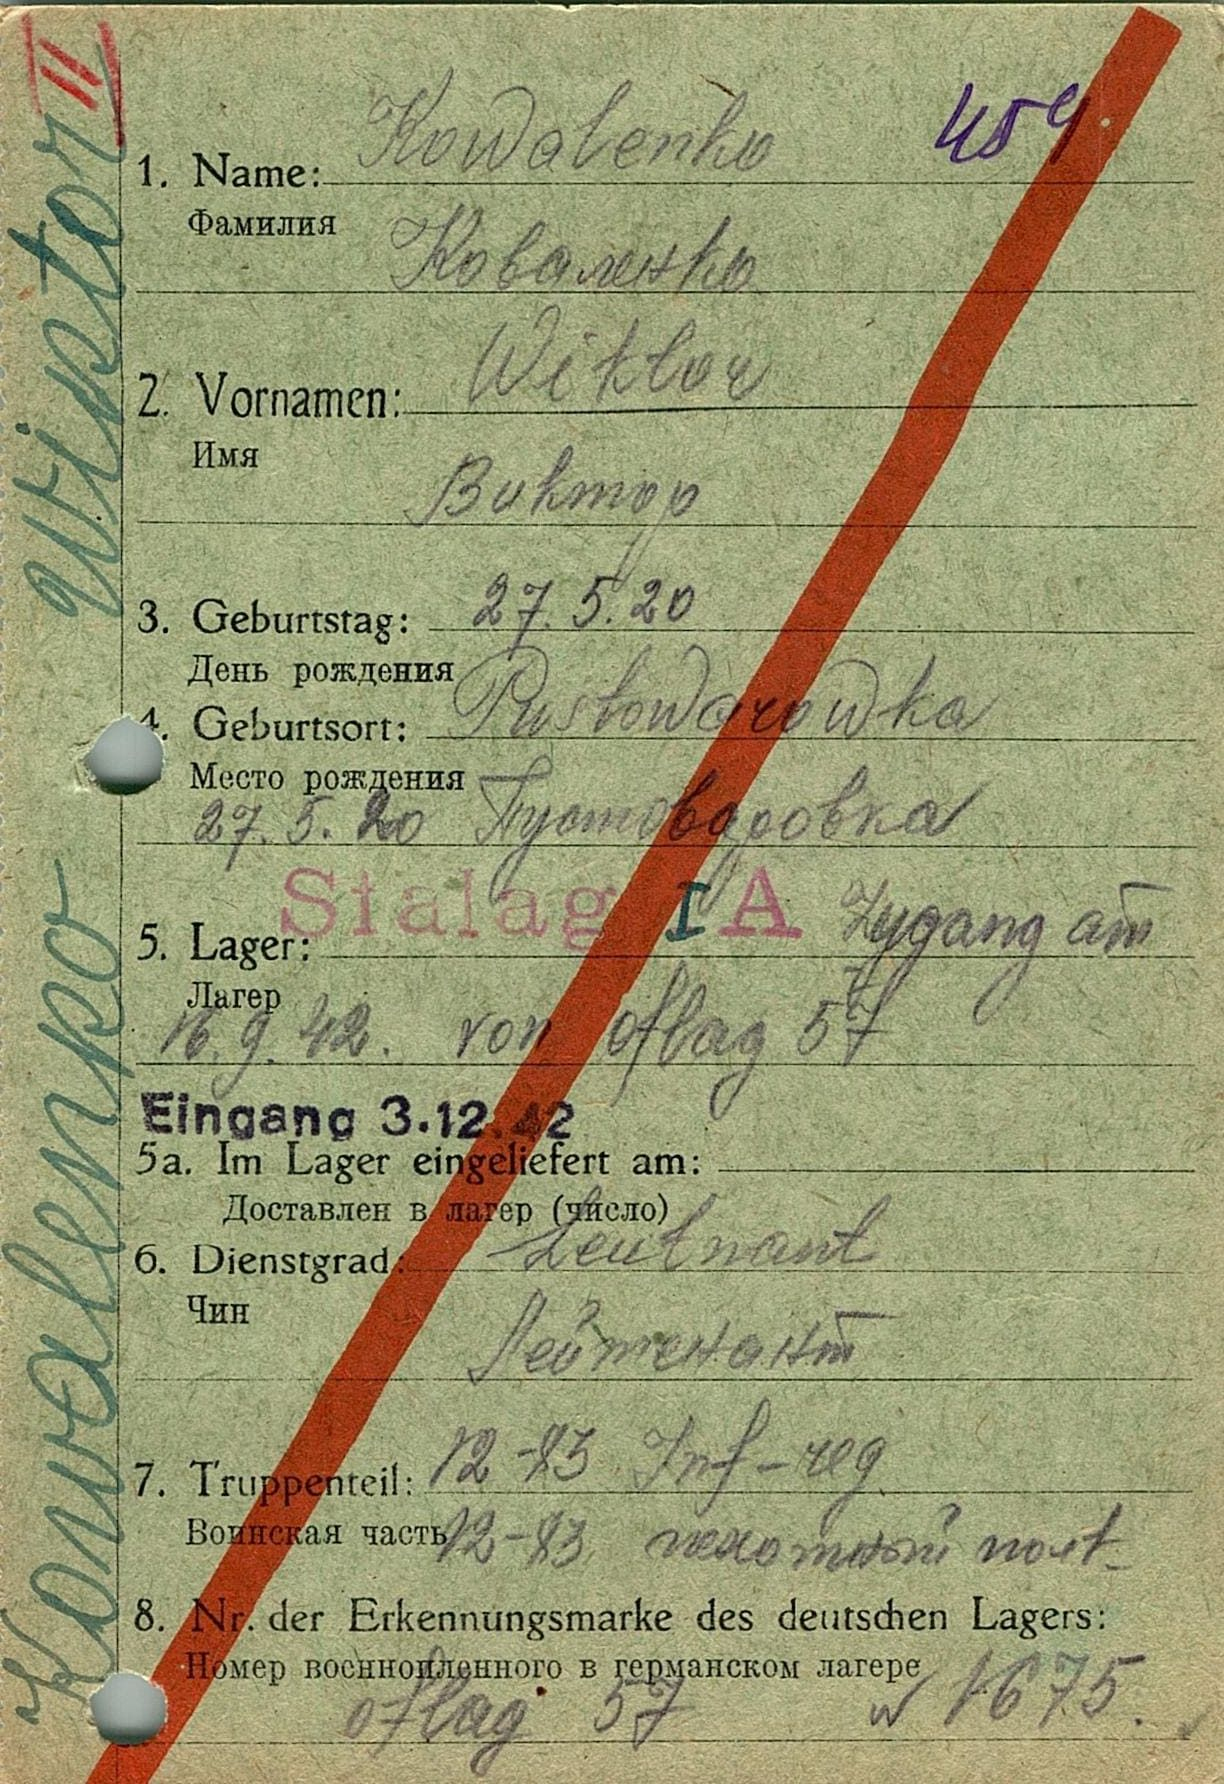 II
459
Kowalenko
1. Name:
Фамилия
Коваленко
Wiktor
2. Vornamen:
Имя
Виктор
3. Geburtstag: 27.5.20
День рождения
4. Geburtsort: Pustowarowka
Место рождения
27.5.20 Пустоваровка
Stalag I A Zugang am
5. Lager:
Лагер
16.9.42. von oflag 57
Eingang 3.12.42
5a. Im Lager eingeliefert am:
Доставлен в лагер (число)
6. Dienstgrad: Leutnant
Чин
Лейтенант
7. Truppenteil: 12-83 Inf-reg
Воинская часть 12-83 пехотный полк
8. Nr. der Erkennungsmarke des deutschen Lagers:
Номер военнопленного в германском лагере
oflag 57 № 1675.
Kowalenko Wiktor